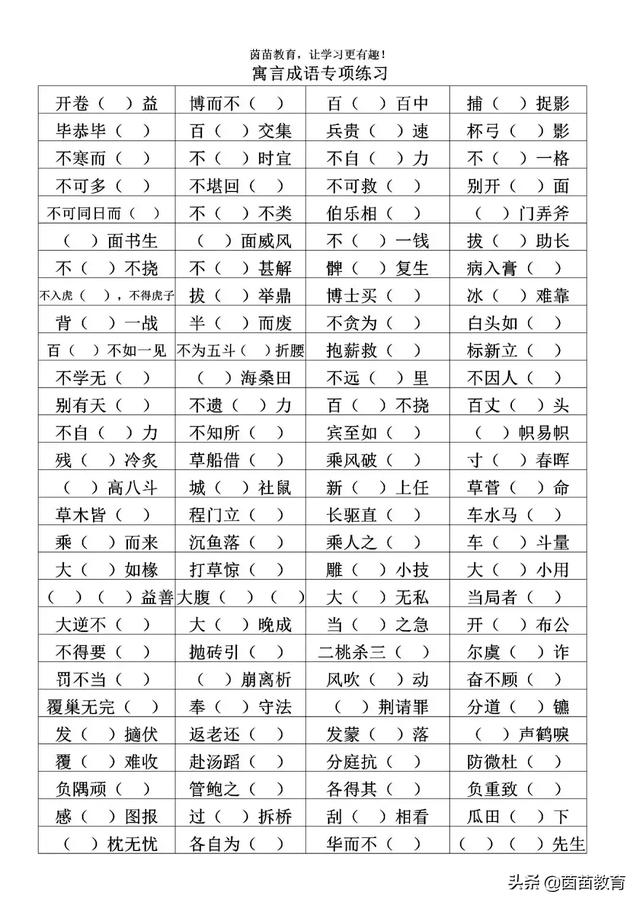 茵苗教育，让学习更有趣！
寓言成语专项练习
开卷（ ）益 博而不（ ） 百（ ）百中 捕（ ）捉影
毕恭毕（ ） 百（ ）交集 兵贵（ ）速 杯弓（ ）影
不寒而（ ） 不（ ）时宜 不自（ ）力 不（ ）一格
不可多（ ） 不堪回（ ） 不可救（ ） 别开（ ）面
不可同日而（ ） 不（ ）不类 伯乐相（ ） （ ）门弄斧
（ ）面书生 （ ）面威风 不（ ）一钱 拔（ ）助长
不（ ）不挠 不（ ）甚解 髀（ ）复生 病入膏（ ）
不入虎（ ），不得虎子 拔（ ）举鼎 博士买（ ） 冰（ ）难靠
背（ ）一战 半（ ）而废 不贪为（ ） 白头如（ ）
百（ ）不如一见 不为五斗（ ）折腰 抱薪救（ ） 标新立（ ）
不学无（ ） （ ）海桑田 不远（ ）里 不因人（ ）
别有天（ ） 不遗（ ）力 百（ ）不挠 百丈（ ）头
不自（ ）力 不知所（ ） 宾至如（ ） （ ）帜易帜
残（ ）冷炙 草船借（ ） 乘风破（ ） 寸（ ）春晖
（ ）高八斗 城（ ）社鼠 新（ ）上任 草菅（ ）命
草木皆（ ） 程门立（ ） 长驱直（ ） 车水马（ ）
乘（ ）而来 沉鱼落（ ） 乘人之（ ） 车（ ）斗量
大（ ）如椽 打草惊（ ） 雕（ ）小技 大（ ）小用
（ ）（ ）益善 大腹（ ）（ ） 大（ ）无私 当局者（ ）
大逆不（ ） 大（ ）晚成 当（ ）之急 开（ ）布公
不得要（ ） 抛砖引（ ） 二桃杀三（ ） 尔虞（ ）诈
罚不当（ ） （ ）崩离析 风吹（ ）动 奋不顾（ ）
覆巢无完（ ） 奉（ ）守法 （ ）荆请罪 分道（ ）镳
发（ ）擿伏 返老还（ ） 发蒙（ ）落 （ ）声鹤唳
覆（ ）难收 赴汤蹈（ ） 分庭抗（ ） 防微杜（ ）
负隅顽（ ） 管鲍之（ ） 各得其（ ） 负重致（ ）
感（ ）图报 过（ ）拆桥 刮（ ）相看 瓜田（ ）下
（ ）枕无忧 各自为（ ） 华而不（ ） （ ）（ ）先生
头条 @茵苗教育